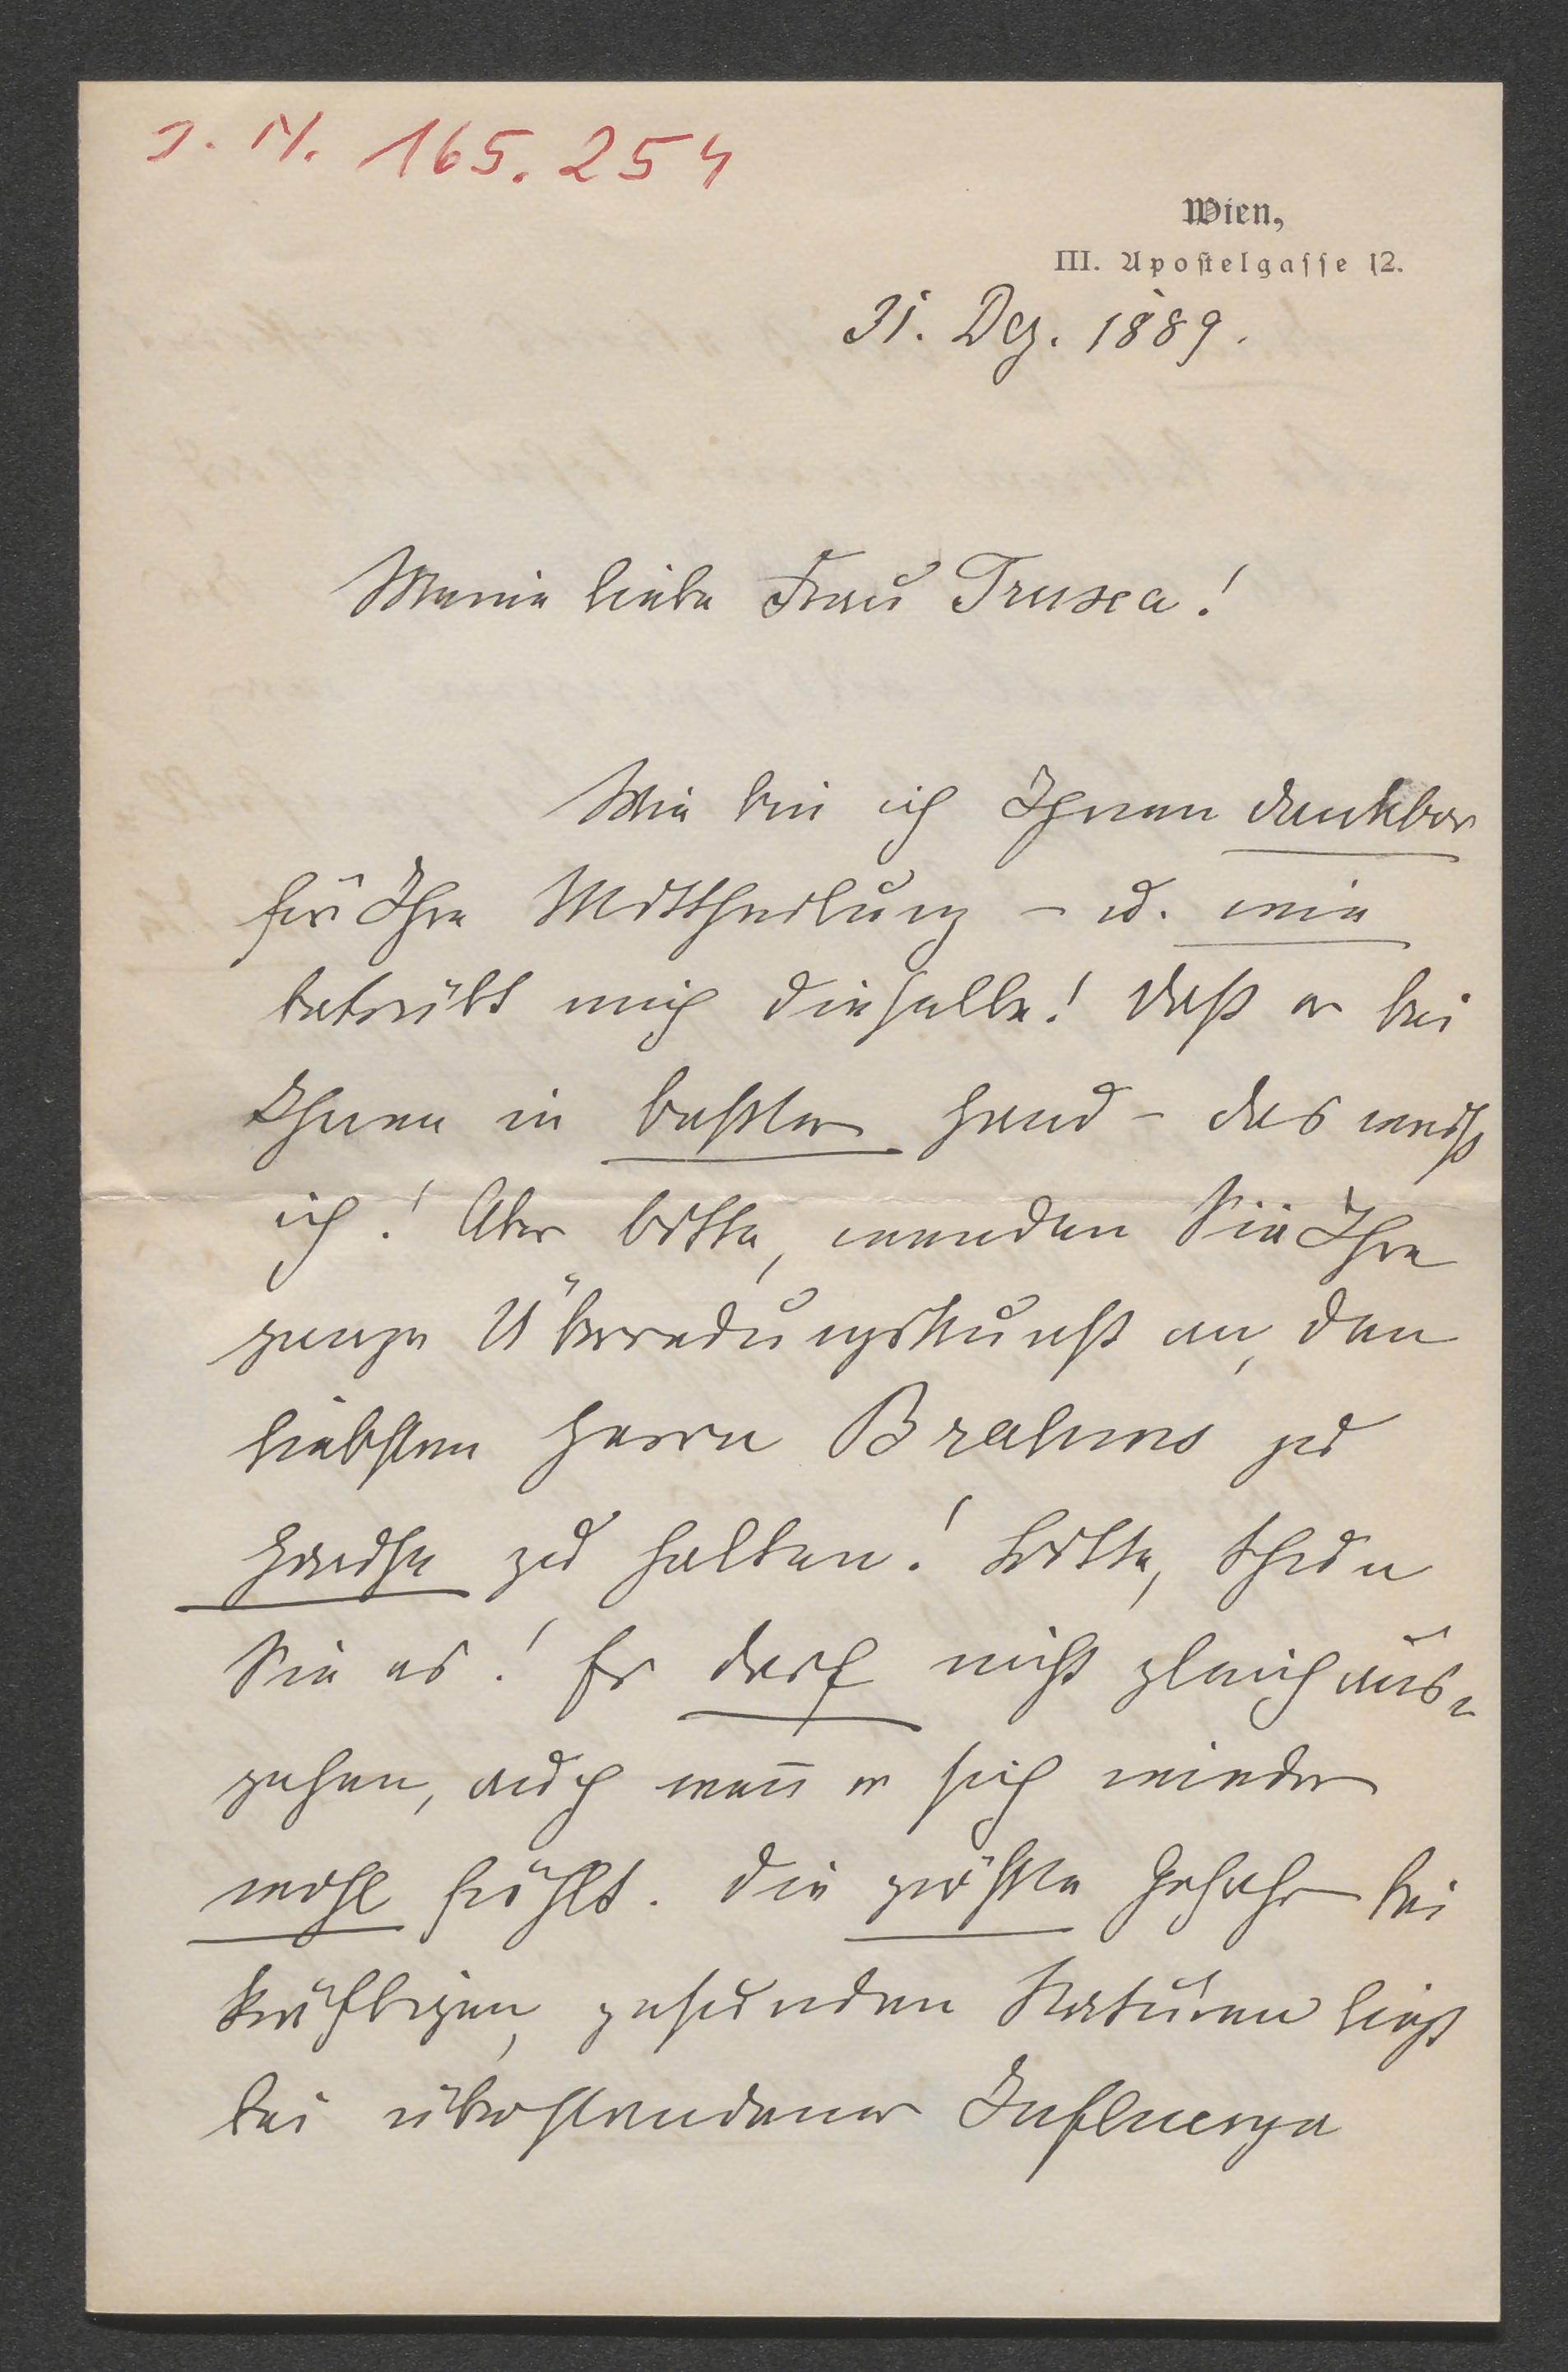 J. N. 165.254
Wien,
III. Apostelgasse 12.
31. Dez. 1889.
Meine liebe Frau Truxa!
Wie bin ich Ihnen dankbar
für Ihre Mittheilung – u. wie
betrübt mich dieselbe! Daß er bei
Ihnen in bester Hand – das weiß
ich! Aber bitte, wenden Sie Ihre
ganze Überredungskunst an, den
liebsten Herrn Brahms zu
Hause zu halten! Bitte, thun
Sie es! Er darf nicht gleich aus-
gehen, auch wen̄ er sich wieder
wohl fühlt. Die größte Gefahr bei
kräftigen, gesunden Naturen liegt
bei überstandener Influenza